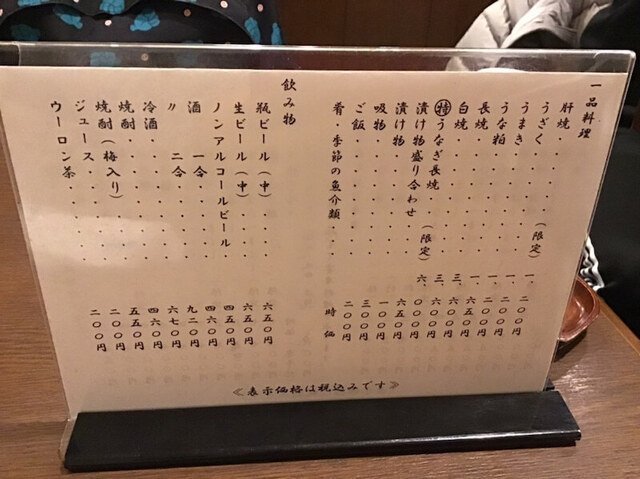 一品料理
肝焼・・・・・・(限定) 一.二〇〇円
うざく・・・・・・・ 一.二〇〇円
うまき・・・・・・・ 一.二〇〇円
うな粕・・・・・・・ 一.六五〇円
長焼・・・・・・・・ 三.六〇〇円
白焼・・・・・・・・ 三.六〇〇円
㊕うなぎ長焼・・(限定) 六.〇〇〇円
漬け物盛り合わせ・・・ 六五〇円
漬け物・・・・・・・ 一〇〇円
吸物・・・・・・・・ 三〇〇円
ご飯・・・・・・・・ 二〇〇円
肴・季節の魚介類・・ 時価
飲み物
瓶ビール(中)・・・ 六五〇円
生ビール(中)・・・ 六五〇円
ノンアルコールビール 四五〇円
酒 一合・・・・・ 四六〇円
〃 二合・・・・・ 九二〇円
冷酒・・・・・・・ 六七〇円
焼酎・・・・・・・ 四六〇円
焼酎(梅入り)・・・ 五五〇円
ジュース・・・・・ 二〇〇円
ウーロン茶・・・・ 二〇〇円
≪表示価格は税込みです≫